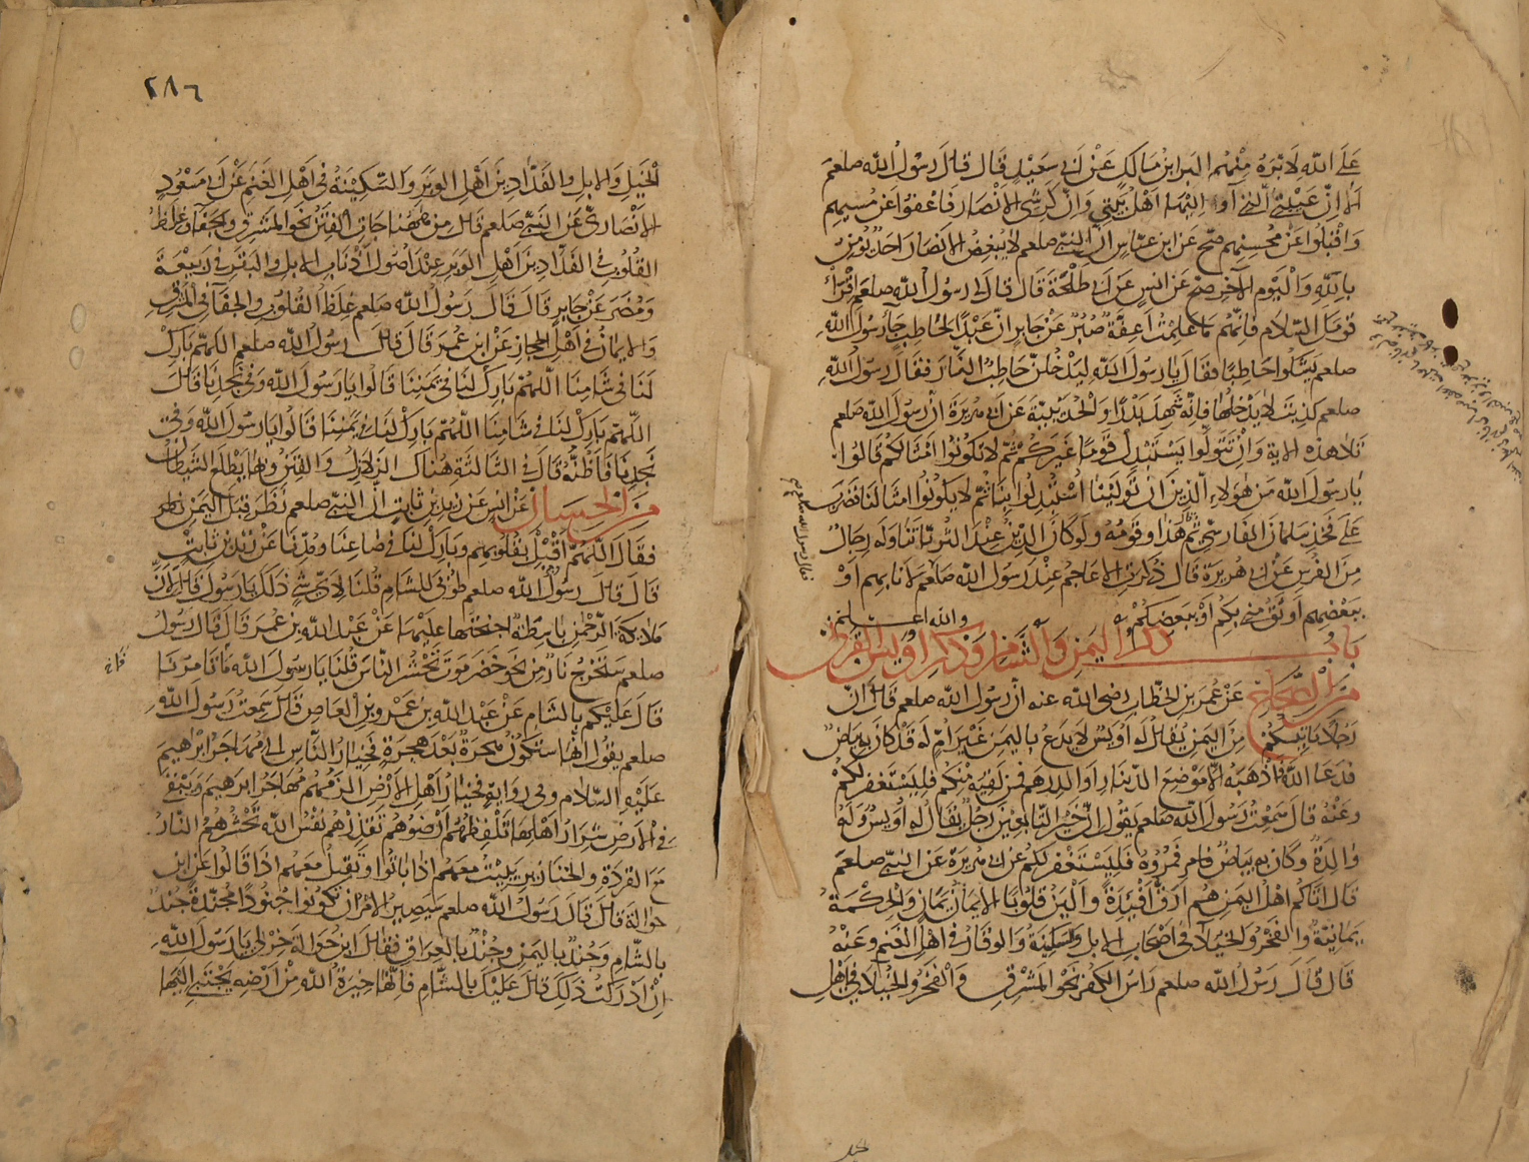 على الله لابره منهم البراء بن مالك عن ابى سعيد قال قال رسول الله صلعم
الا ان عيبتي التي آوى اليها اهل بيتي وان كرشى الانصار فاعفوا عن مسيهم
واقبلوا عن محسنهم صح عن ابن عباس ان النبى صلعم لا يبغض الانصار احد يؤمن
بالله واليوم الآخر صح عن انس عن ابى طلحة قال قال لى رسول الله صلعم اقرأ
قومك السلام فانهم ما علمت اعفة صبر عن جابر ان عبدا لحاطب جاء رسول الله
صلعم يشكوا حاطبا فقال يا رسول الله ليدخلن حاطب النار فقال رسول الله
صلعم كذبت لا يدخلها فانه شهد بدرا والحديبية عن ابى هريرة ان رسول الله صلعم
تلا هذه الاية وان تتولوا يستبدل قوما غيركم ثم لا تكونوا امثالكم قالوا
يا رسول الله من هؤلاء الذين ان تولينا استبدلوا بنا ثم لا يكونوا امثالنا فضرب
على فخذ سلمان الفارسي ثم قال هذا وقومه ولو كان الدين عند الثريا لتناوله رجال
من الفرس عن ابى هريرة قال ذكرت الاعاجم عند رسول الله صلعم لانا بهم او
ببعضهم اوثق منى بكم او ببعضكم والله اعلم
باب ذكر اليمن والشام وذكر اويس القرنى
من الصحاح عن عمر بن الخطاب رضى الله عنه ان رسول الله صلعم قال ان
رجلا ياتيكم من اليمن يقال له اويس لا يدع باليمن غير ام له قد كان به بياض
فدعا الله فاذهبه الا موضع الدينار او الدرهم فمن لقيه منكم فليستغفر لكم
وعنه قال سمعت رسول الله صلعم يقول ان خير التابعين رجل يقال له اويس وله
والدة وكان به بياض فامروه فليستغفر لكم عن ابى هريرة عن النبى صلعم
قال اتاكم اهل اليمن هم ارق افئدة والين قلوبا الايمان يمان والحكمة
يمانية والفخر والخيلاء فى اصحاب الابل والسكينة والوقار فى اهل الغنم وعنه
قال قال رسول الله صلعم راس الكفر نحو المشرق والفخر والخيلاء في اهل
٢٨٦
الخيل والابل والفدادين اهل الوبر والسكينة فى اهل الغنم عن ابى مسعود
الانصارى عن النبى صلعم قال من ههنا جات الفتن نحو المشرق والجفاء وغلظ
القلوب فى الفدادين اهل الوبر عند اصول اذناب الابل والبقر فى ربيعة
ومضر عن جابر قال قال رسول الله صلعم غلظ القلوب والجفاء فى المشرق
والايمان فى اهل الحجاز عن ابن عمر قال قال رسول الله صلعم اللهم بارك
لنا فى شامنا اللهم بارك لنا فى يمننا قالوا يا رسول الله وفى نجدنا قال
اللهم بارك لنا فى شامنا اللهم بارك لنا فى يمننا قالوا يا رسول الله وفى
نجدنا فاظنه قال فى الثالثة هناك الزلازل والفتن وبها يطلع الشيطان
من الحسان عن انس عن زيد بن ثابت ان النبى صلعم نظر قبل اليمن
فقال اللهم اقبل بقلوبهم وبارك لنا فى صاعنا ومدنا عن زيد بن ثابت
قال قال رسول الله صلعم طوبى للشام قلنا لاى شى ذلك يا رسول الله قال لان
ملائكة الرحمن باسطة اجنحتها عليها عن عبد الله بن عمر قال قال رسول
صلعم ستخرج نار من نحو حضرموت تحشر الناس قلنا يا رسول الله فما تامرنا
قال عليكم بالشام عن عبد الله بن عمرو بن العاص قال سمعت رسول الله
صلعم يقول انها ستكون هجرة بعد هجرة فخيار الناس الى مهاجر ابراهيم
عليه السلام وفى رواية فخيار اهل الارض الزمهم مهاجر ابرهيم ويبقى
فى الارض شرار اهلها تلفظهم ارضوهم تقذرهم نفس الله تحشرهم النار
مع القردة والخنازير يبيت معهم اذا باتوا وتقيل معهم اذا قالوا عن ابن
حوالة قال قال رسول الله صلعم سيصير الامر ان تكونوا جنودا مجندة جند
بالشام وجند باليمن وجند بالعراق فقال ابن حوالة خر لى يا رسول الله
ان ادركت ذلك قال عليك بالشام فانها خيرة الله من ارضه يجتبى اليها